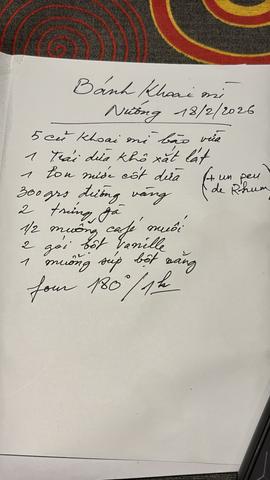 Bánh Khoai mì
Nướng 18/2/2026
5 củ khoai mì bào vừa
1 trái dừa khô xắt lát
1 lon nước cốt dừa (+ un peu de Rhum)
300grs đường vàng
2 trứng gà
1/2 muỗng café muối
2 gói bột Vanille
1 muỗng súp bột năng
four 180°/1h